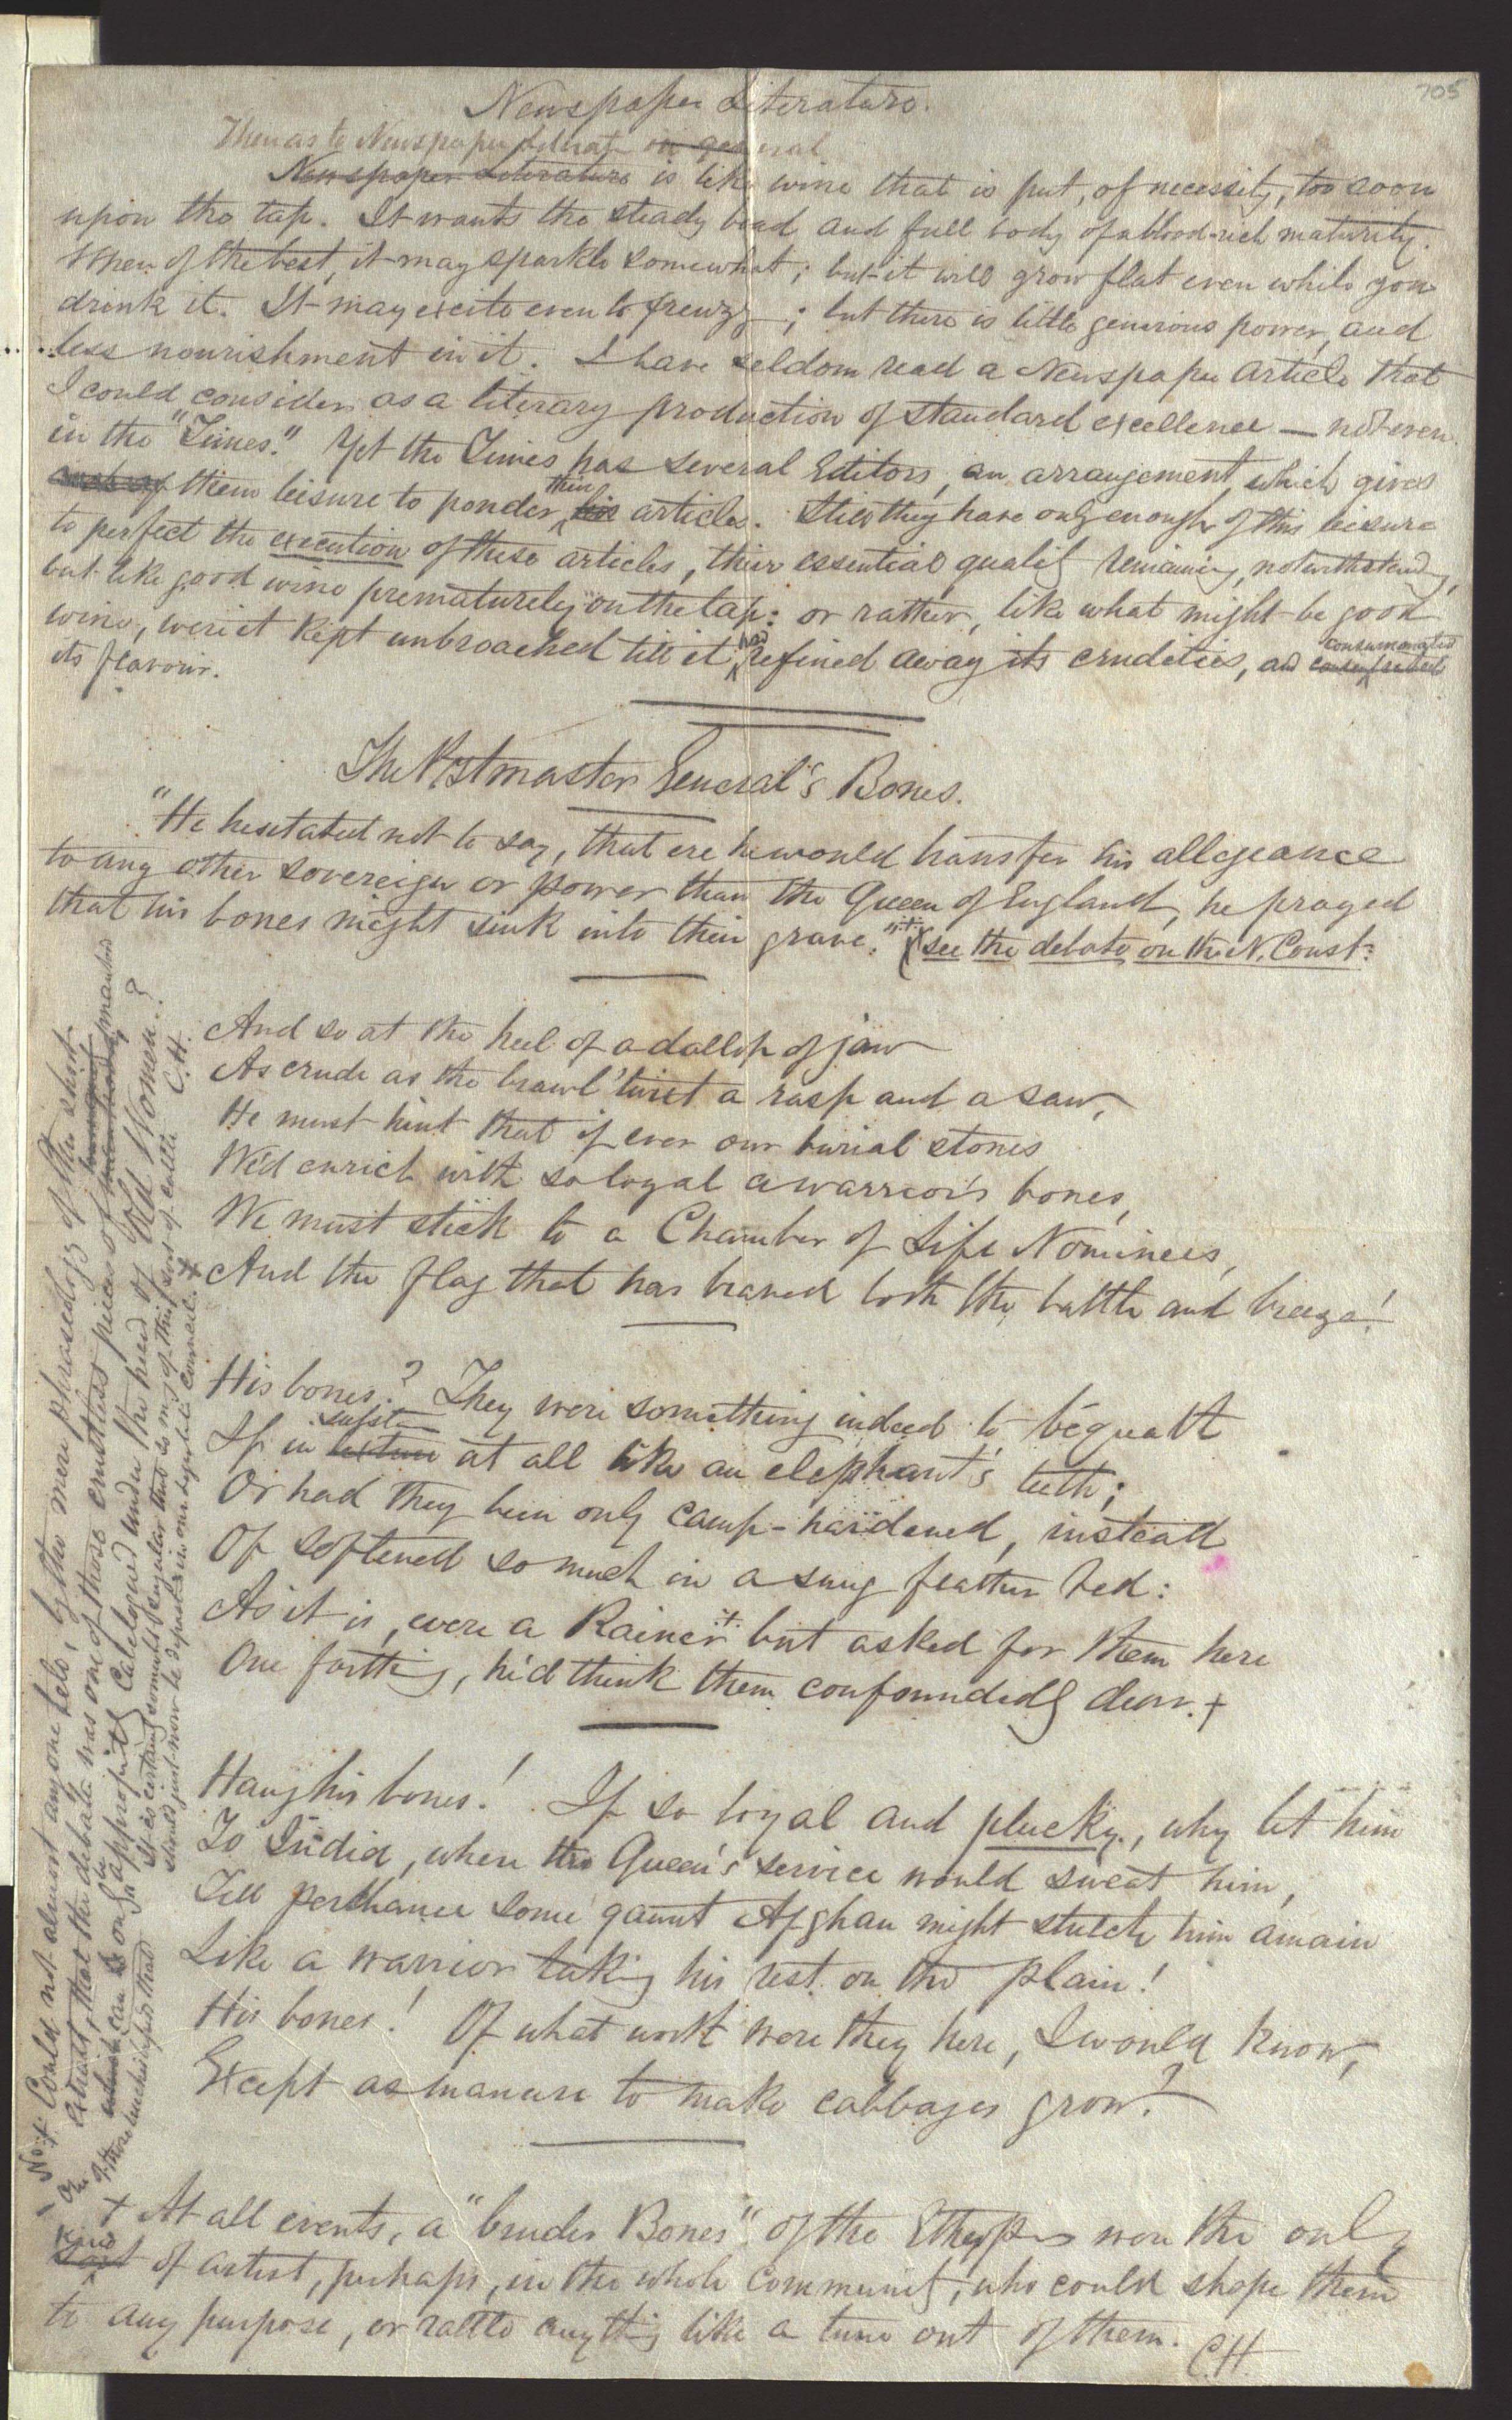 705
Newspaper Literature.
Then as to Newspaper Literature in general
Newspaper Literature is like wine that is put, of necessity, too soon
upon the tap. It wants the steady bead and full body of a blood-rich maturity.
When of the best, it may sparkle somewhat; but it will grow flat even while you
drink it. It may excite even to frenzy; but there is little generous power, and
less nourishment in it. I have seldom read a Newspaper Article that
I could consider as a literary production of standard excellence — not even
in the "Times." Yet the Times has several Editors, an arrangement which gives
them leisure to ponder their his articles. Still they have only enough of this leisure
to perfect the execution of these articles, their essential quality remaining, notwithstanding,
but like good wine prematurely on the tap: or rather, like what might be good
wine, were it kept unbroached till it had refined away its crudities, and consummated
its flavour.
The Postmaster General's Bones.
"He hesitated not to say, that ere he would transfer his allegeance
to any other sovereign or power than the Queen of England, he prayed
that his bones might sink into their grave." see the debate on the N. Const:
And so at the heel of a dallop of jaw
As crude as the brawl 'twixt a rasp and a saw,
He must hint that if ever our burial stones
We'd enrich with so loyal a warrior's bones,
We must stick to a Chamber of Life Nominees,
And the flag that has braved both the battle and breeze!
His bones? They were something indeed to bequath
If in substa texture at all like an elephant's teeth;
Or had they been only camp-hardened, instead
Of softened so much in a snug feather bed:
As it is, were a Rainer but asked for them here
One farthing, he'd think them confoundedly dear. +
Hang his bones! If so loyal and plucky, why let him
To India, where the Queen's service would sweat him,
Till perchance some gaunt Afghan might stretch him amain
Like a warrior taking his rest on the plain!
His bones! Of what worth were they here, I would know,
Except as manure to make cabbages grow?
+ At all events, a "bruder Bones" of the Ethiops were the only
kind sort of artist, perhaps, in the whole community, who could shape them
to any purpose, or rattle anything like a tune out of them. C.H.
Could not almost any one tell, by the mere phraseology of this short
extract, that the debate was one of those crustless pieces of
which can only be appropriately Catelogued under the head of Old Women?
It is certainly somewhat singular that so many of this sort of cattle
should just now be depastured in our Legislative Council. C.H.